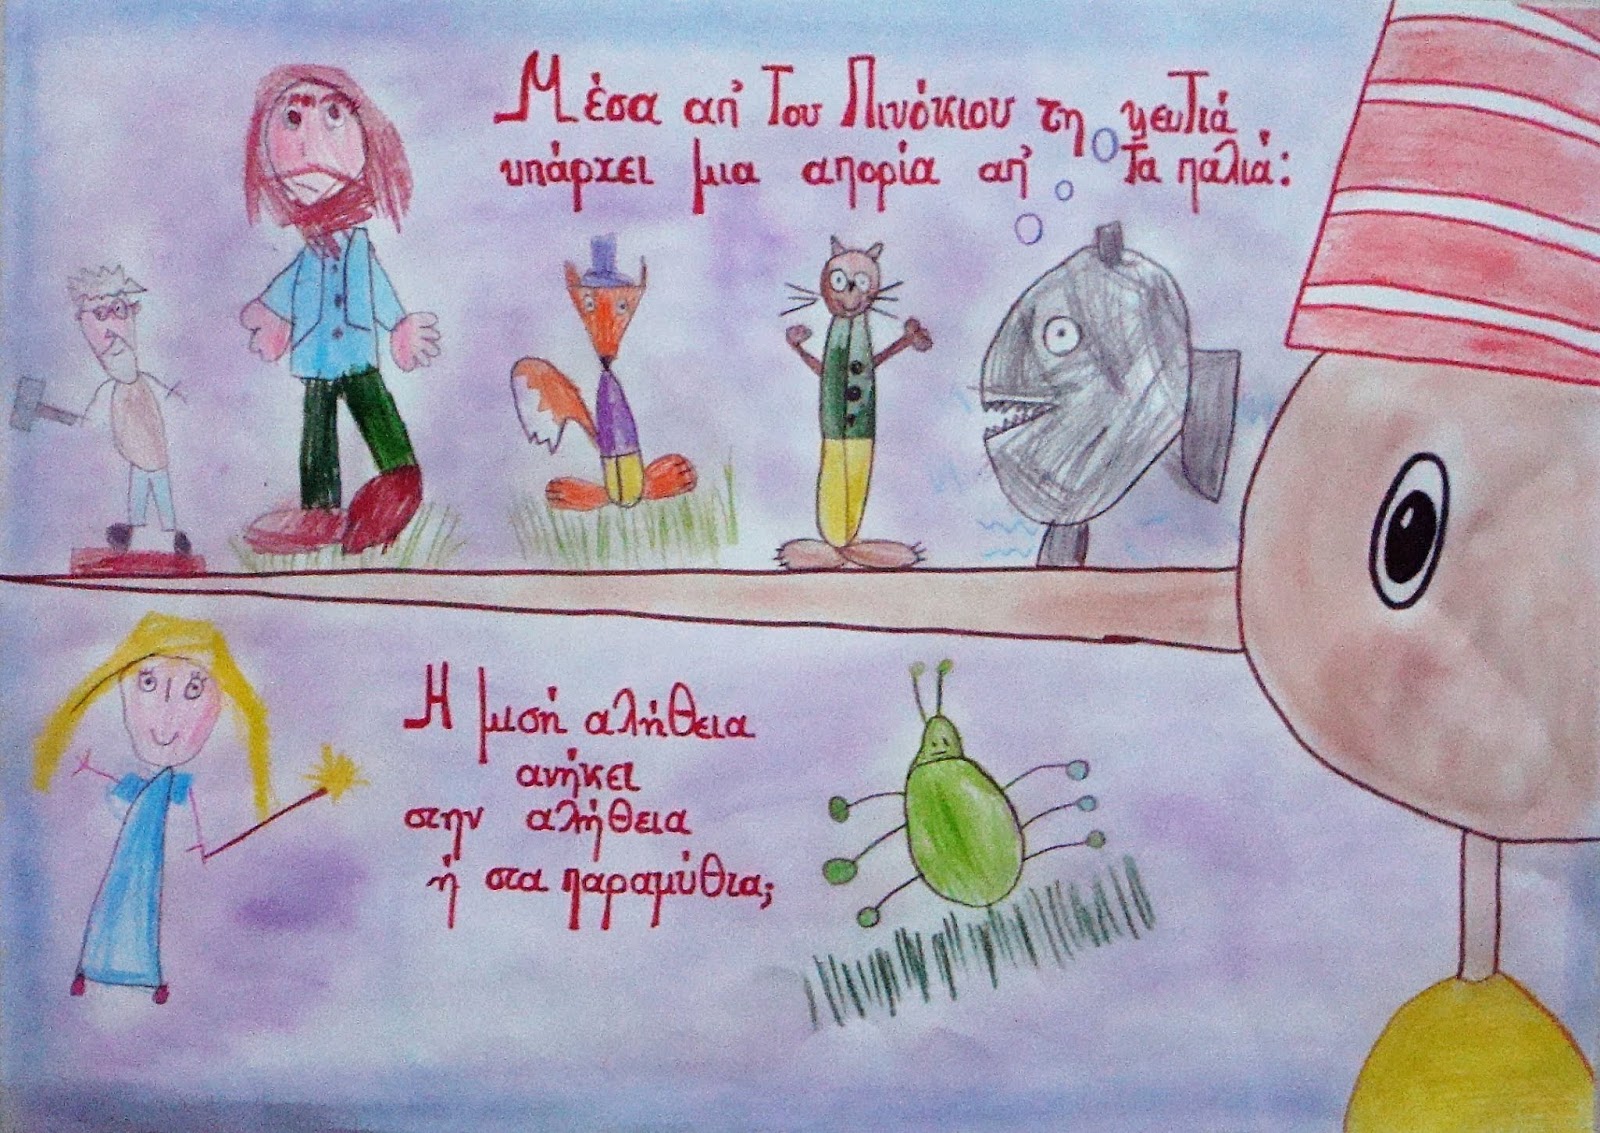 Μέσα απ' του Πινόκιου τη ψευτιά
υπάρχει μια απορία απ' τα παλιά:
Η μισή αλήθεια
ανήκει
στην αλήθεια
ή στα παραμύθια;